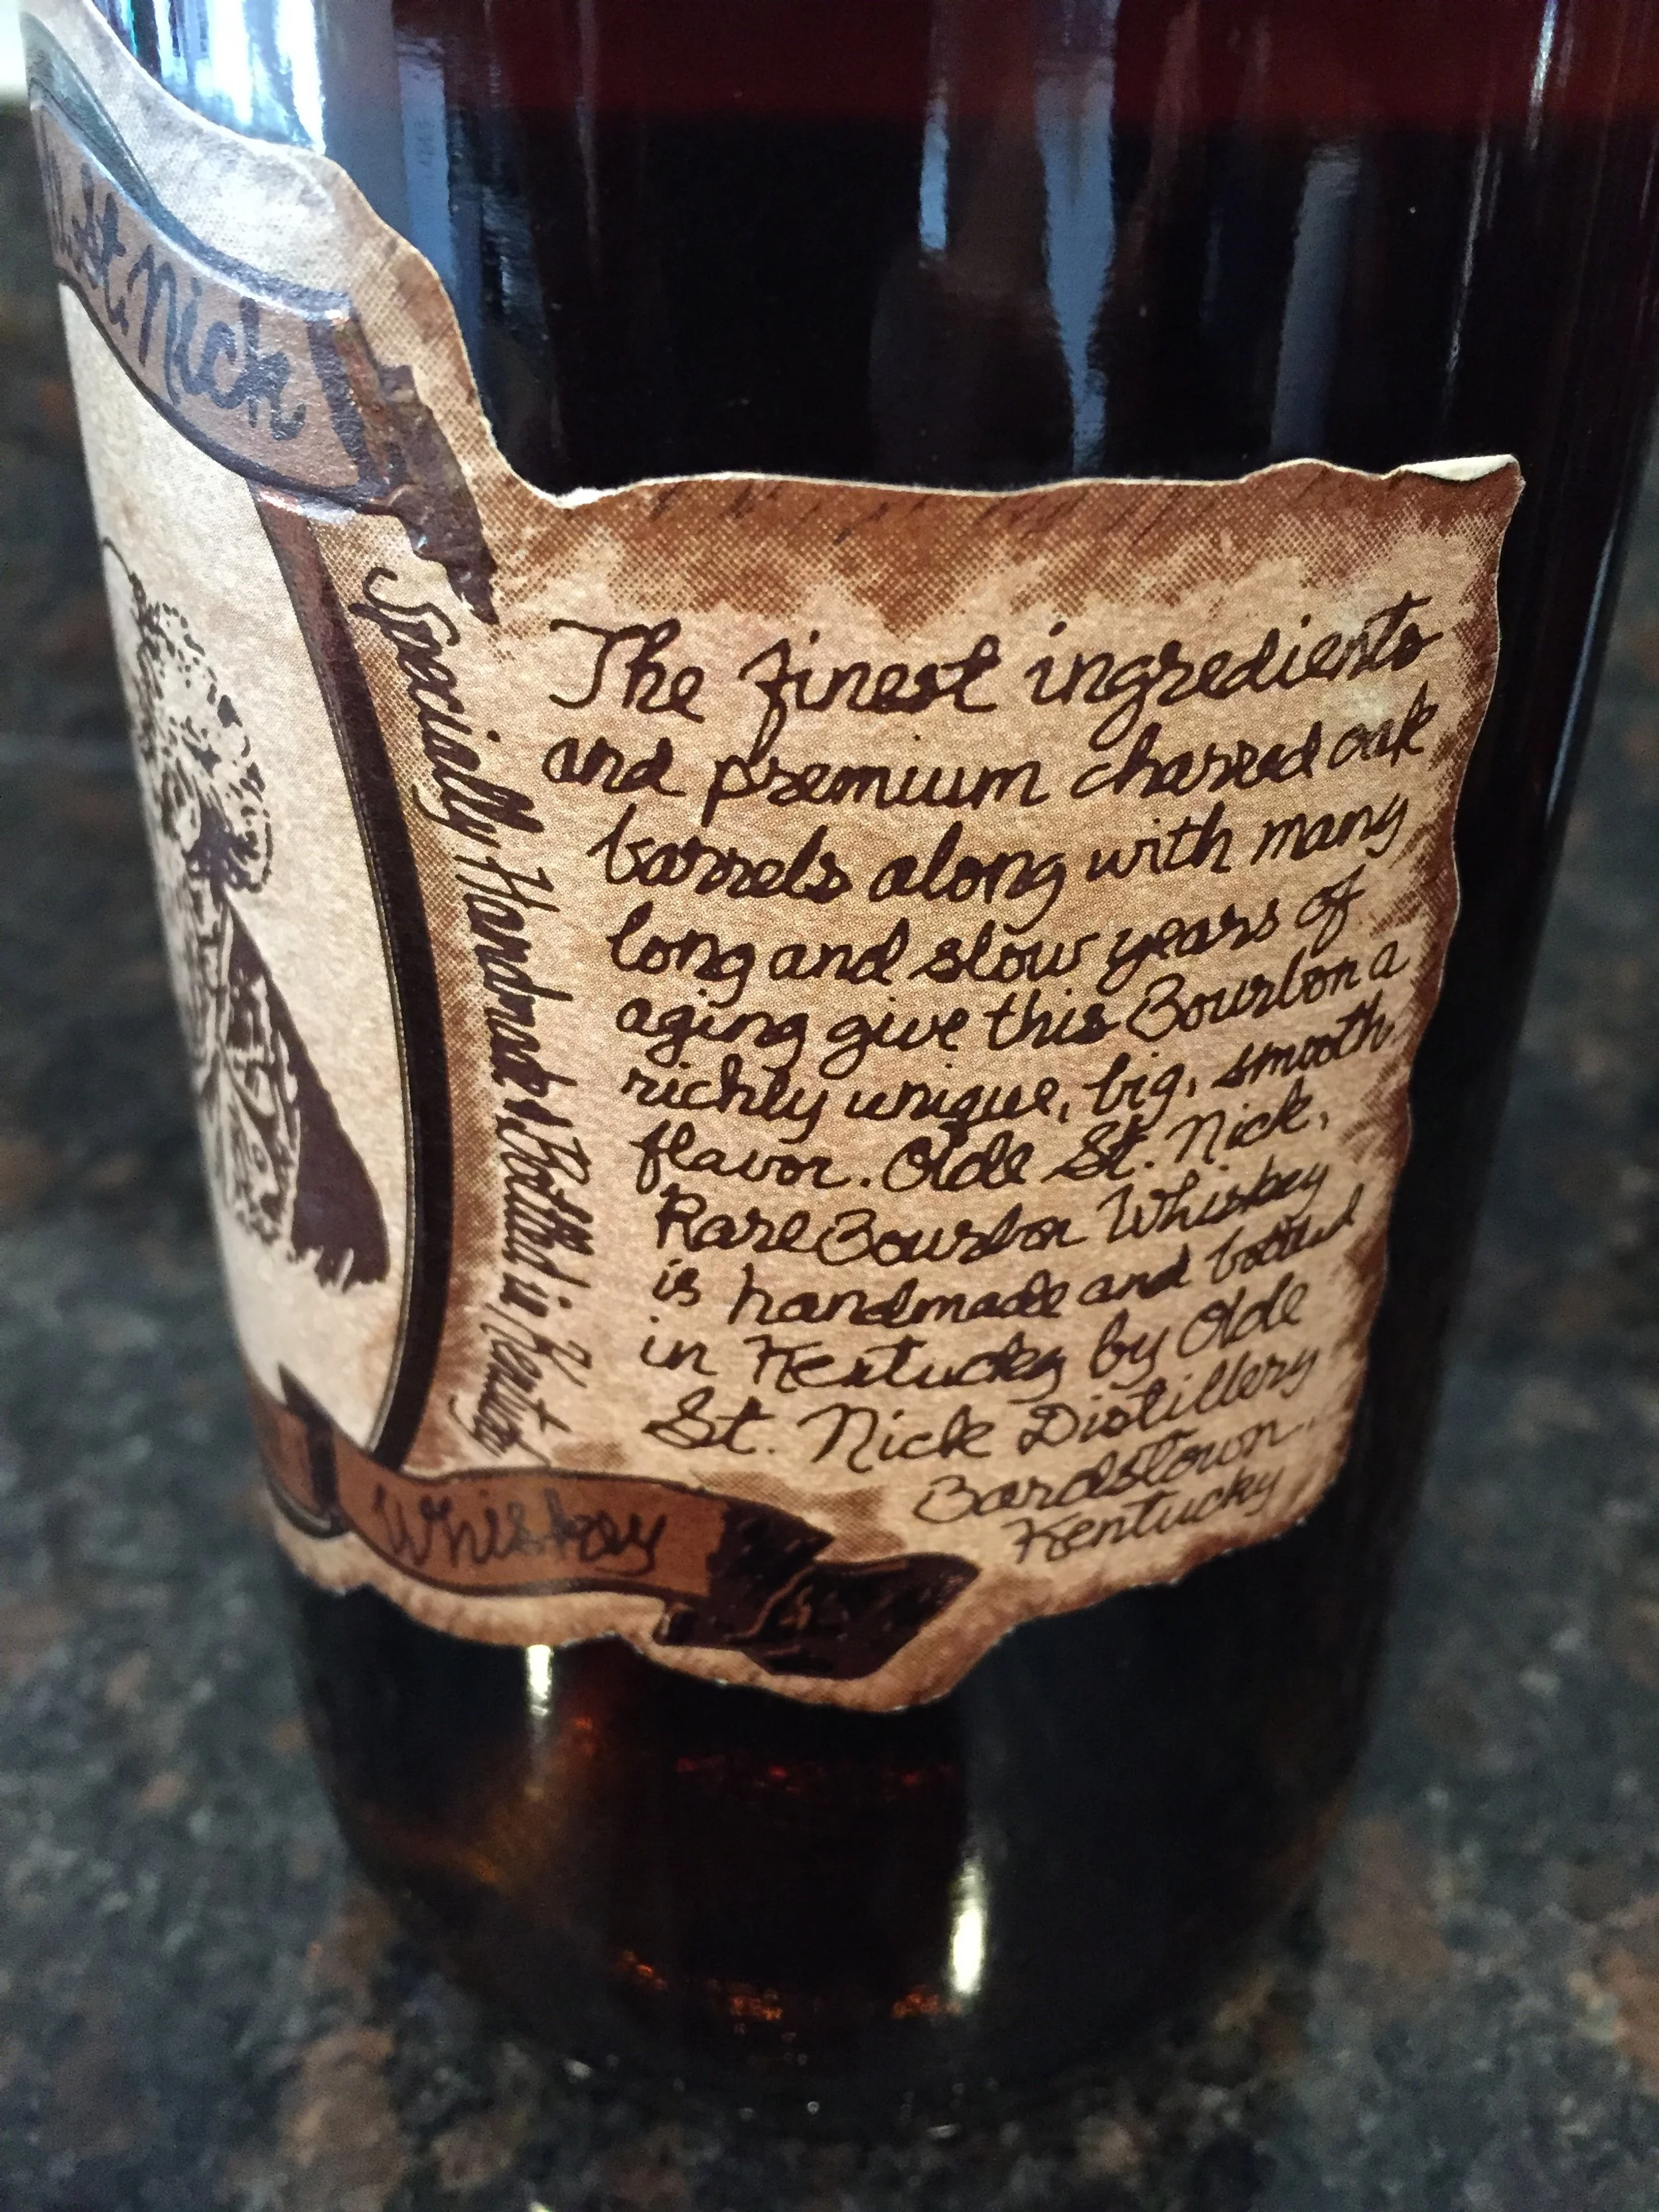 St Nick
Specially Handmade & Bottled in Kentucky
The finest ingredients
and premium charred oak
barrels along with many
long and slow years of
aging give this Bourbon a
richly unique, big, smooth
flavor. Olde St. Nick,
Rare Bourbon Whiskey
is handmade and bottled
in Kentucky by Olde
St. Nick Distillery
Bardstown,
Kentucky
Whiskey